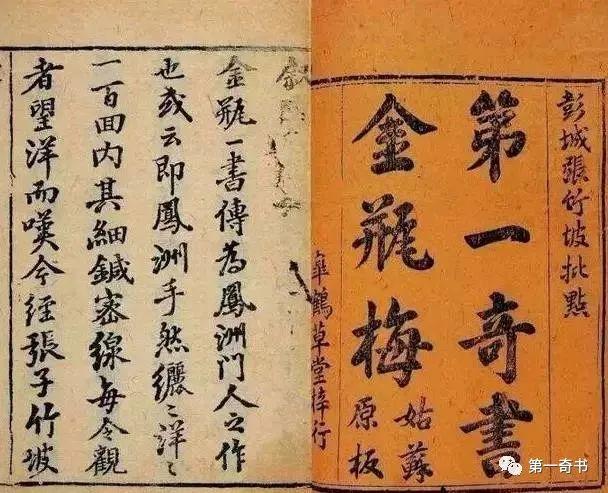 彭城張竹坡批點
第一奇書
金瓶梅
姑蘇
原板
臯鶴草堂梓行
金瓶一書傳為鳳洲門人之作
也或云即鳳洲手然纚〻洋〻
一百回內其細鍼密線每令觀
者望洋而嘆今經張子竹坡
第一奇书